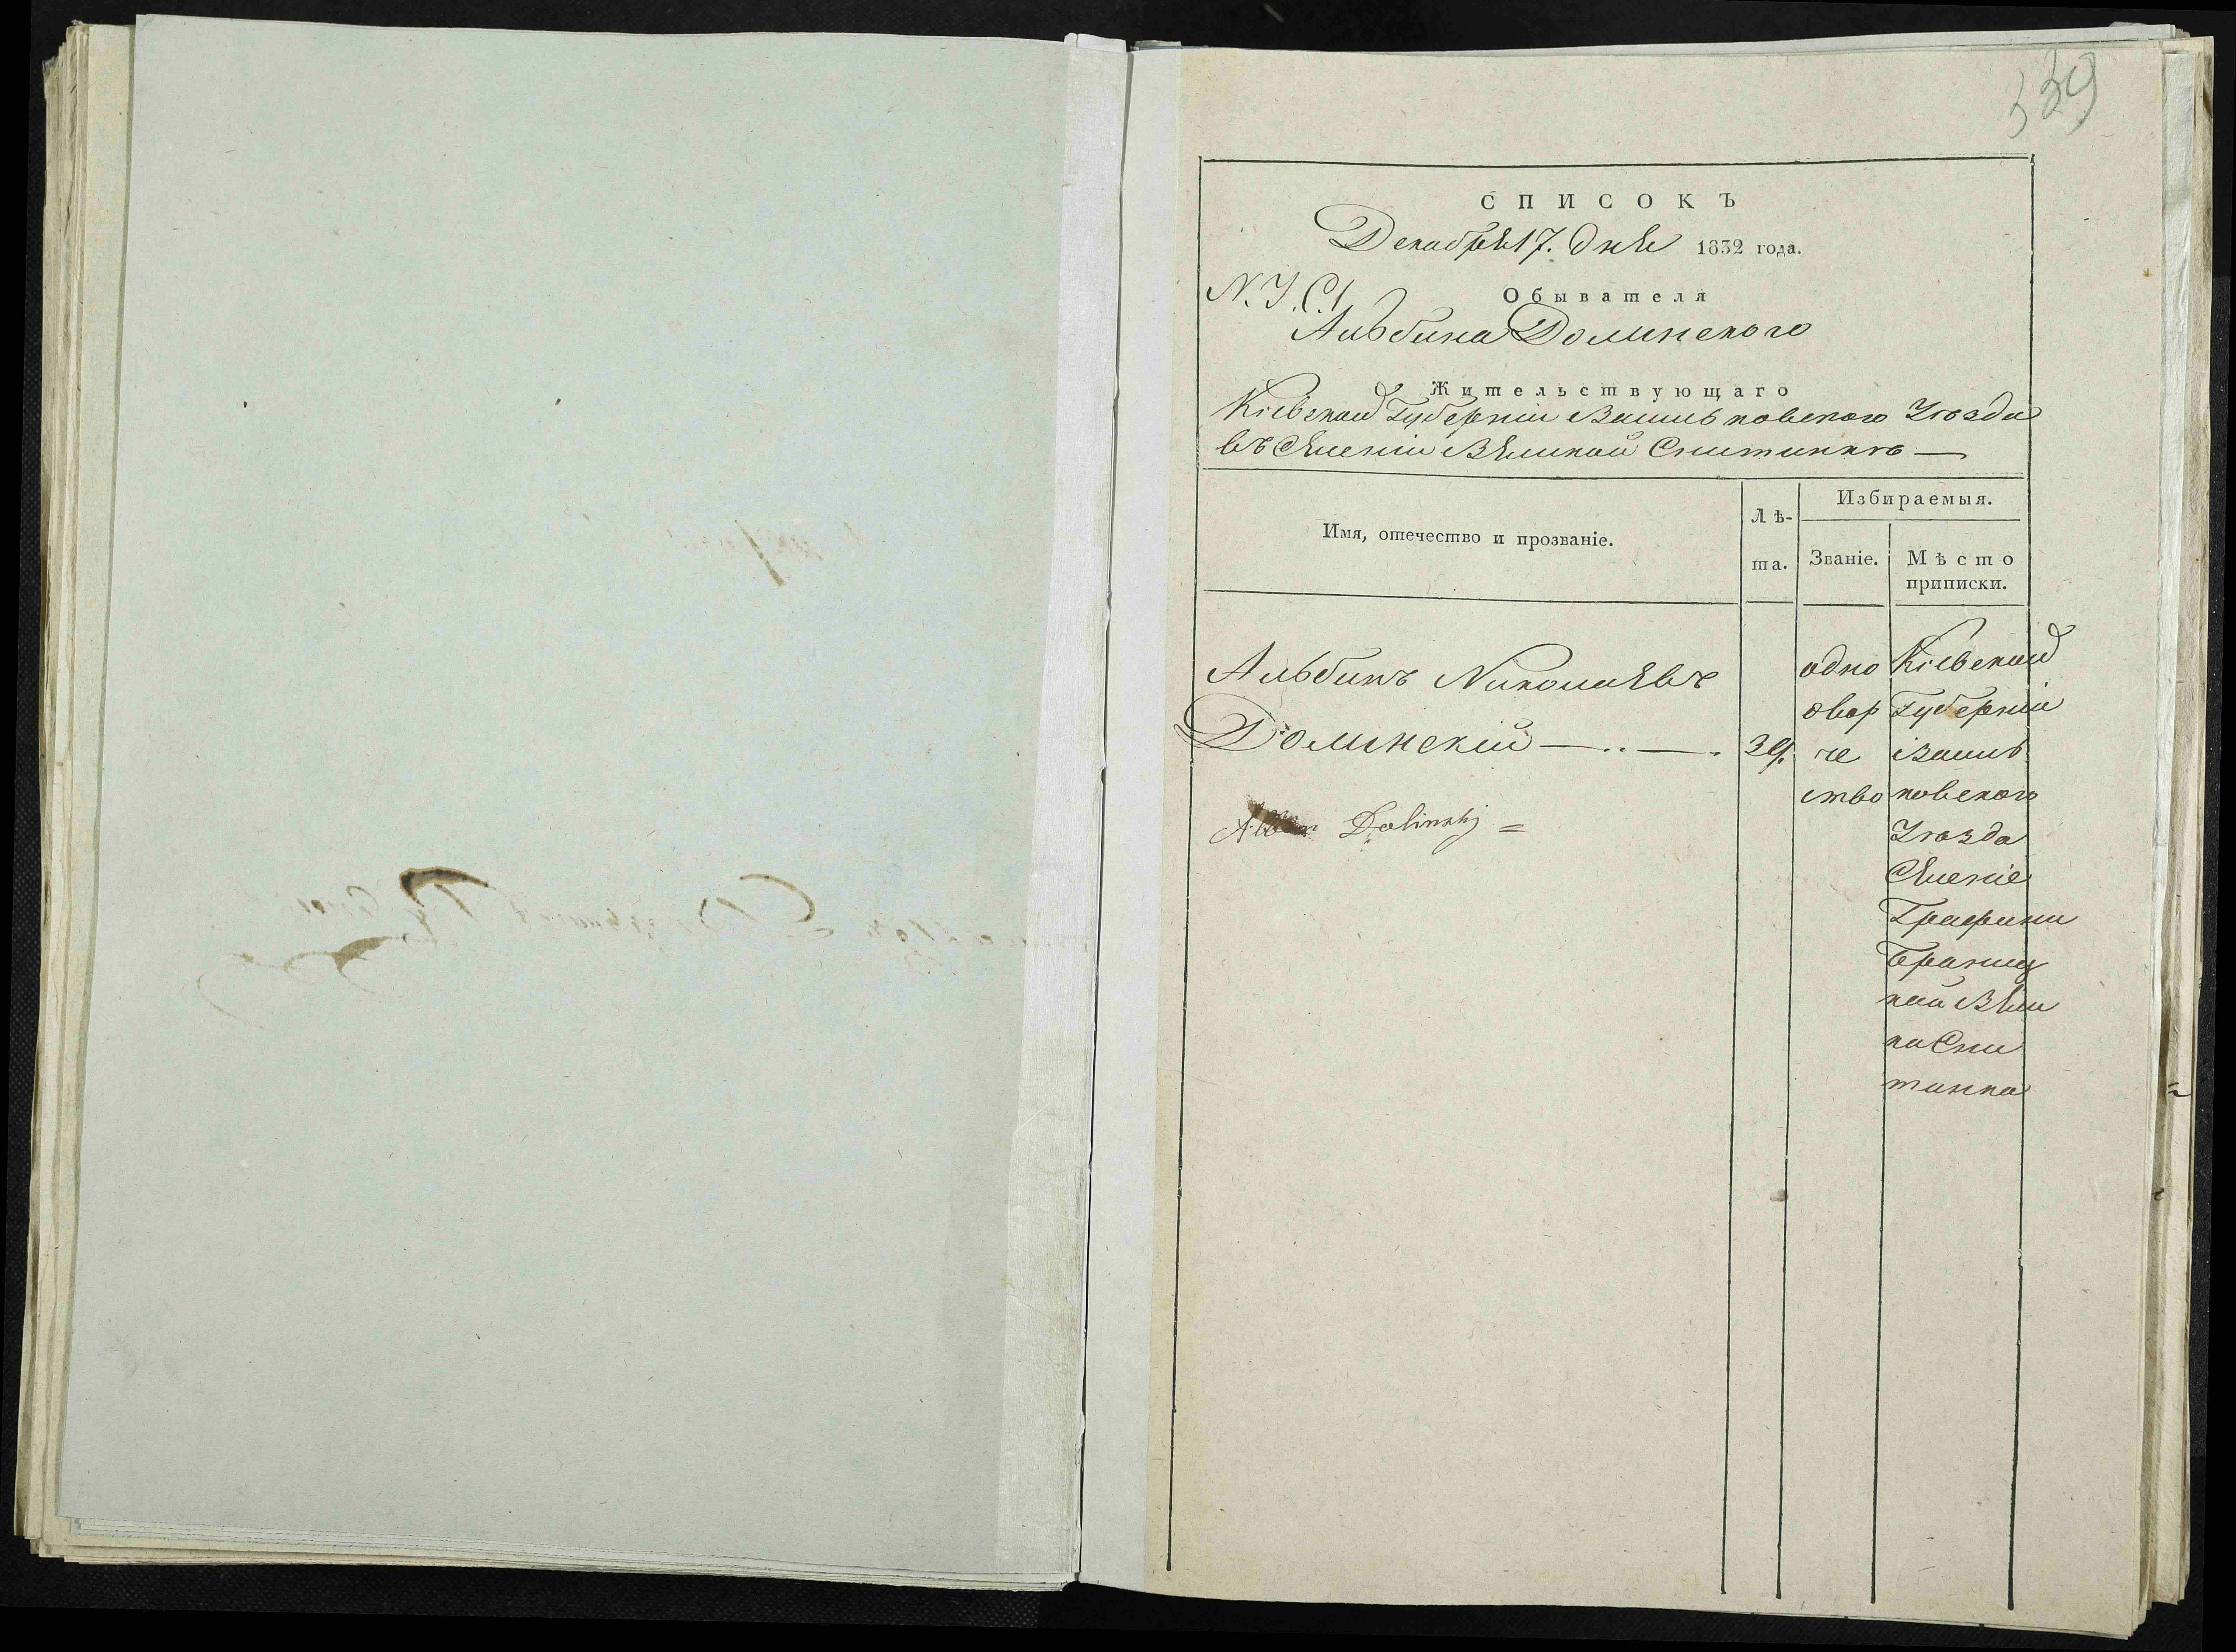 339
СПИСОКЪ
Декабря 17. дня 1832 года.
Обывателя
Альбина Долинского
Жительствующаго
Кіевской Губерніи Васильковского Уѣзда
въ Селеніи Великой Снитинкѣ —
Имя, отечество и прозваніе.
Лѣ-
та.
Избираемыя.
Званіе.
Мѣсто
приписки.
Альбинъ Николаевъ
Долинскій — .. — .
39.
одно
двор
че
ство
Кіевской
Губерніи
Василь
ковского
Уѣзда
Селеніе
Графини
Браниц
кой Вели
ка Сни
тинка
Dolinskij =